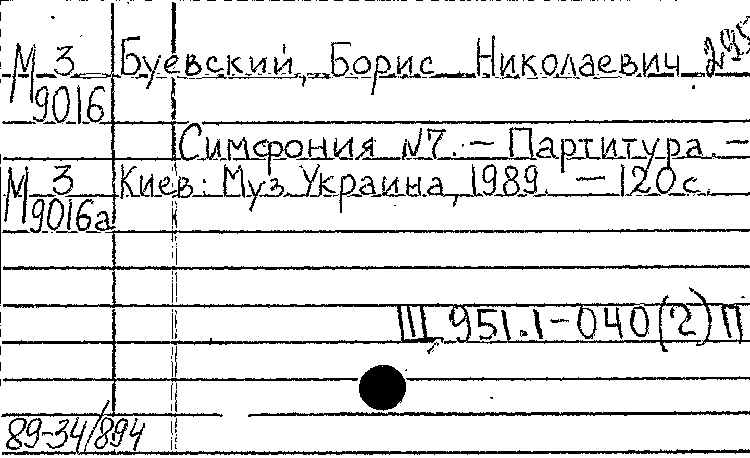 М 3 Буевский, Борис Николаевич 295
9016
Симфония N7. – Партитура. –
М 3 Киев: Муз. Украина, 1989. – 120 с.
9016а
Щ 951.1-040(2)П
89-34/894